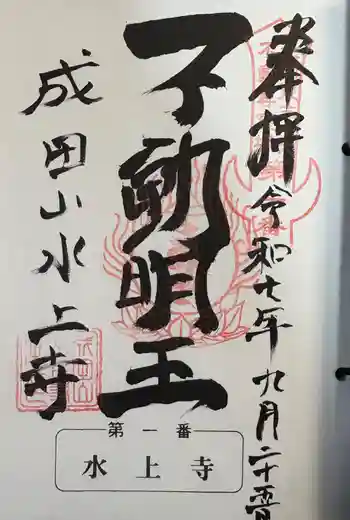 奉拝 令和七年九月二十一日
不動明王
成田山水上寺
第一番
水上寺